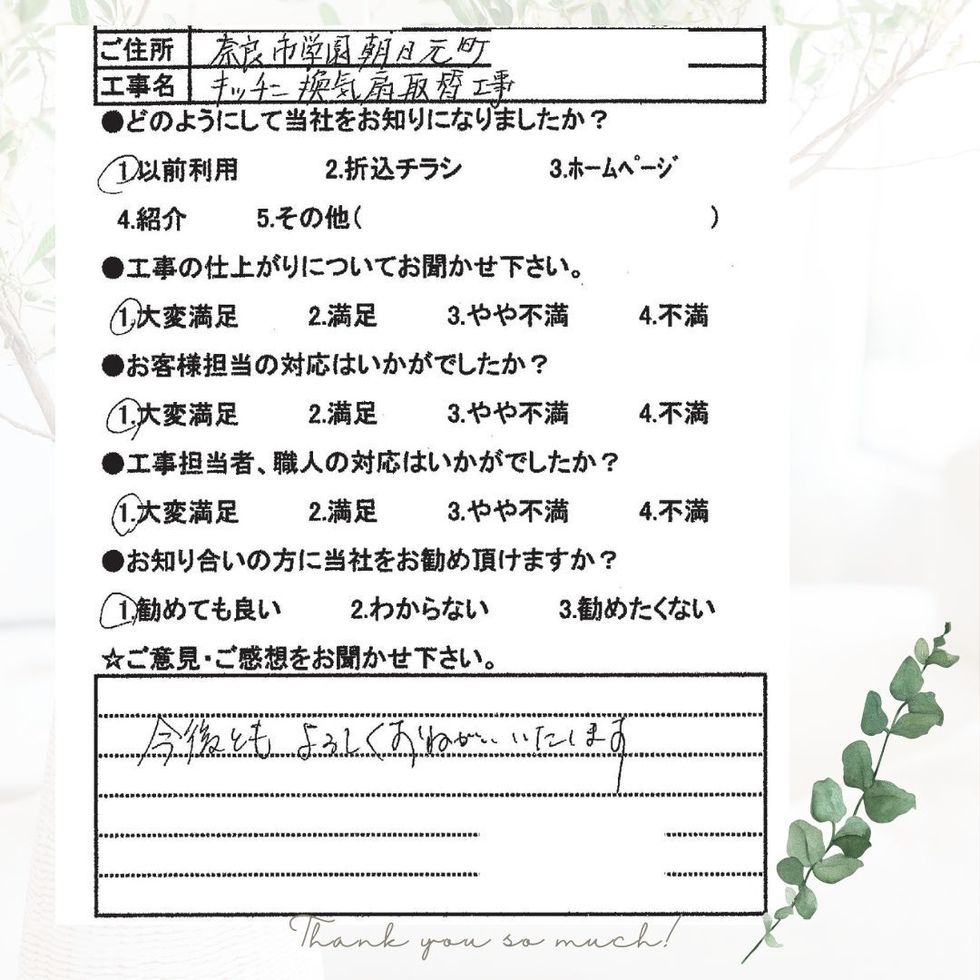 ご住所 奈良市学園朝日元町
工事名 キッチン換気扇取替工事
●どのようにして当社をお知りになりましたか？
1.以前利用 2.折込チラシ 3.ホームページ
4.紹介 5.その他( )
●工事の仕上がりについてお聞かせ下さい。
1.大変満足 2.満足 3.やや不満 4.不満
●お客様担当の対応はいかがでしたか？
1.大変満足 2.満足 3.やや不満 4.不満
●工事担当者、職人の対応はいかがでしたか？
1.大変満足 2.満足 3.やや不満 4.不満
●お知り合いの方に当社をお勧め頂けますか？
1.勧めても良い 2.わからない 3.勧めたくない
☆ご意見・ご感想をお聞かせ下さい。
今後とも よろしくおねがいいたします
Thank you so much!